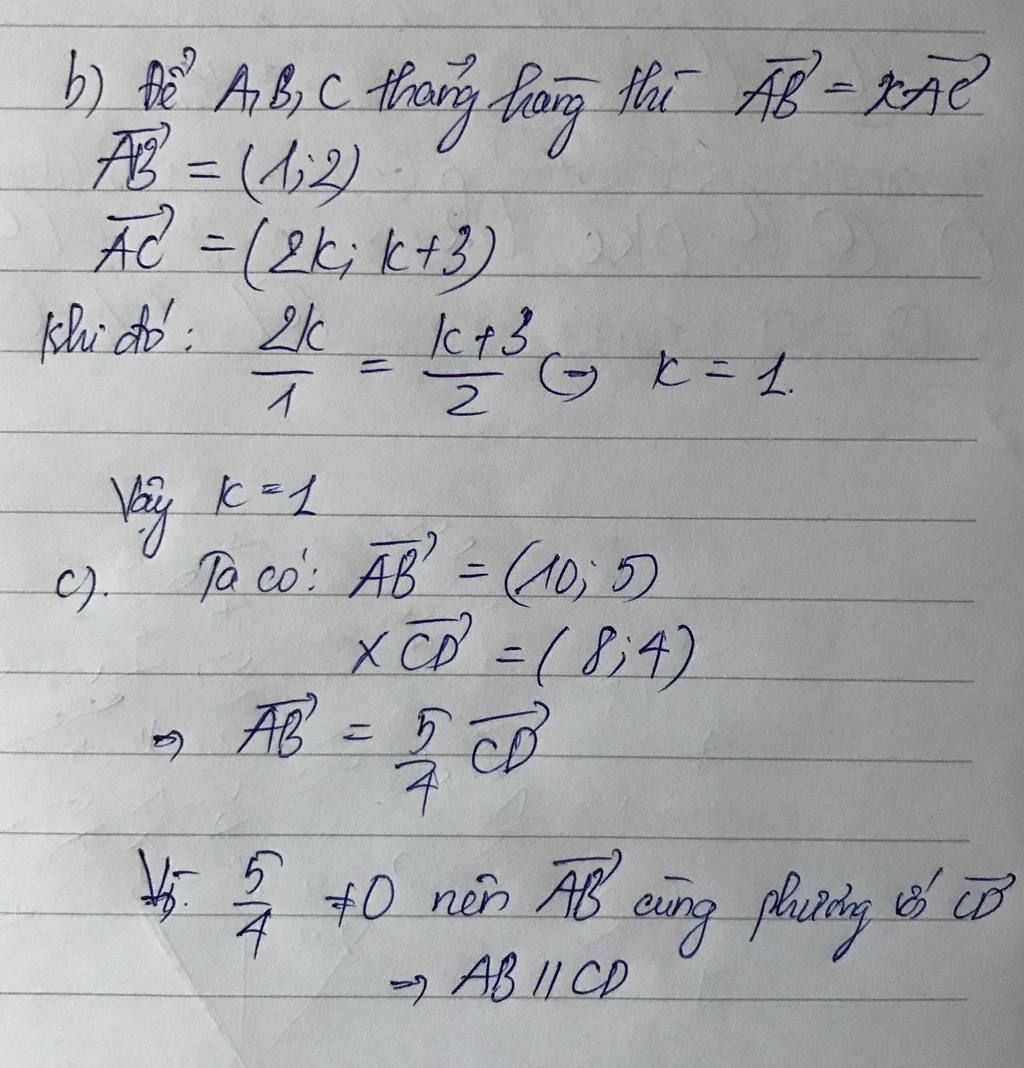 b) Để A, B, C thẳng hàng thì $\overrightarrow{AB} = k\overrightarrow{AC}$
$\overrightarrow{AB} = (1; 2)$
$\overrightarrow{AC} = (2k; k+3)$
Khi đó: $\frac{2k}{1} = \frac{k+3}{2}$ ⇔ k = 1.
Vậy k = 1
c). Ta có: $\overrightarrow{AB} = (10; 5)$
x $\overrightarrow{CD} = (8; 4)$
⇒ $\overrightarrow{AB} = \frac{5}{4} \overrightarrow{CD}$
Vì $\frac{5}{4} \neq 0$ nên $\overrightarrow{AB}$ cùng phương với $\overrightarrow{CD}$
⇒ AB // CD